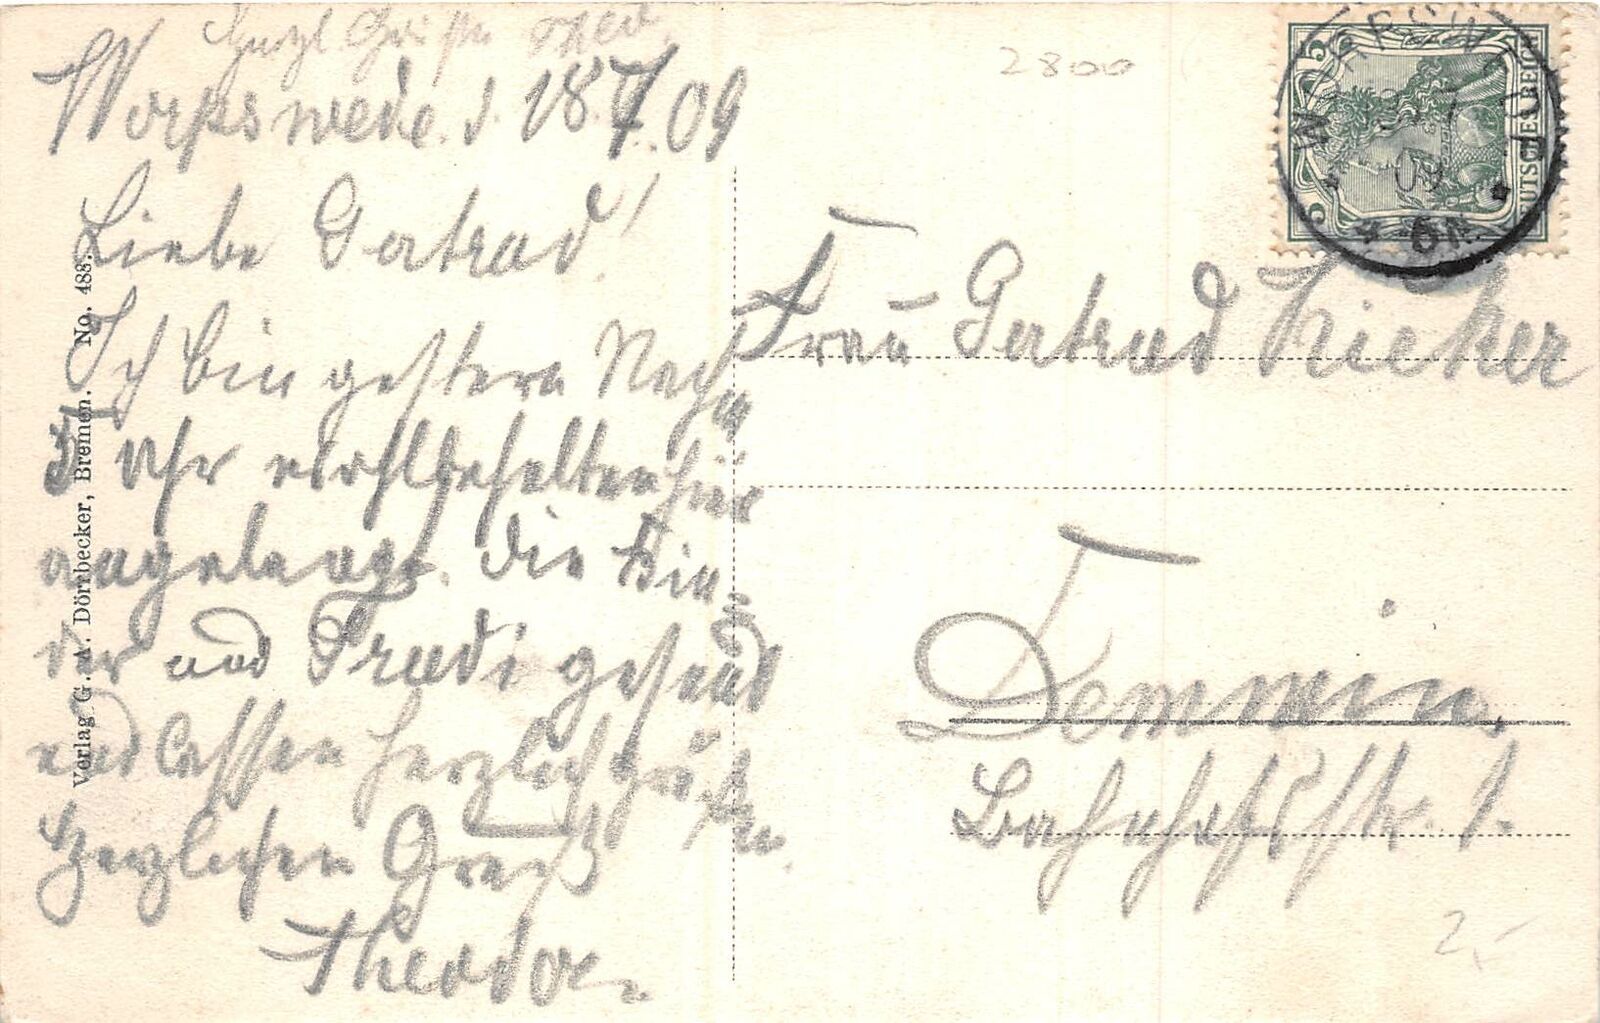 Herzl. Grüße
Worpswede. d. 18.7.09
Liebe Gertrud!
Ich bin gestern Nachm
5 Uhr wohlbehalten hier
angelangt. Die Kin-
der und Trudi gesund
und lassen herzlich grüßen.
Herzlichen Gruß
Theodor.
2800
DEUTSCHES REICH
5
5
WORPSW
Frau Gertrud
Demmin,
Bahnhofstr. 1.
2,-
Verlag G. A. Dörrbecker, Bremen. No. 488.